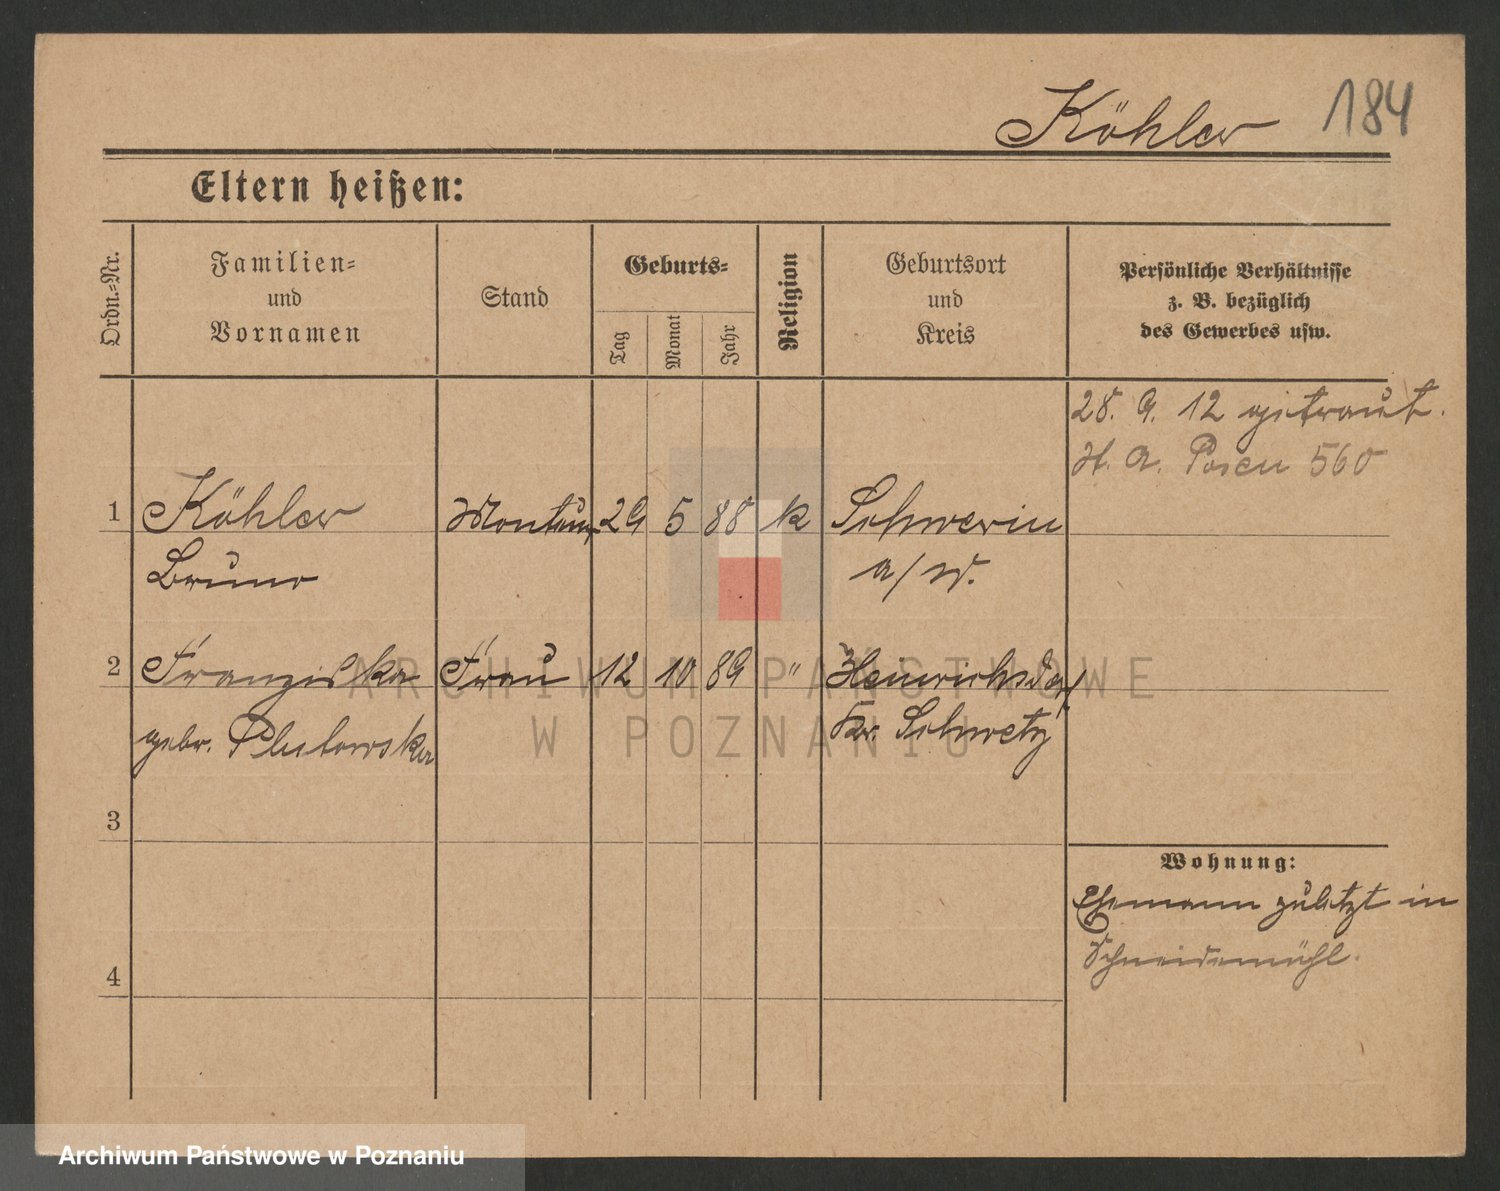 Köhler 184
Eltern heißen:
Ordn.-Nr.
Familien-
und
Vornamen
Stand
Geburts-
Tag
Monat
Jahr
Religion
Geburtsort
und
Kreis
Persönliche Verhältnisse
z. B. bezüglich
des Gewerbes usw.
28. 9. 12 getraut.
H. A. Posen 560
1 Köhler Monteur 29 5 88 k Schwerin
Bruno a/W.
2 Franziska Frau 12 10 89 " Heinrichsdorf
gebr. Plutowska Kr. Schwetz
3
Wohnung:
Ehemann zuletzt in
Schneidemühl.
4
ARCHIWUM PAŃSTWOWE
W POZNANIU
Archiwum Państwowe w Poznaniu